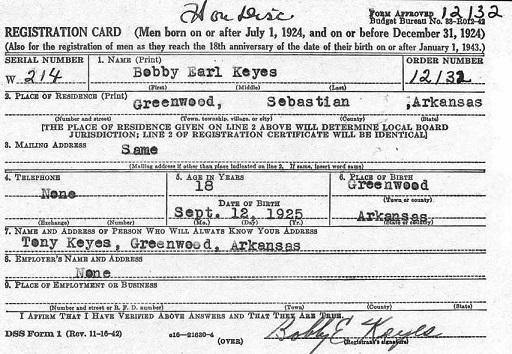 Hon Disc
FORM APPROVED 12132
Budget Bureau No. 33-R012-42
REGISTRATION CARD (Men born on or after July 1, 1924, and on or before December 31, 1924)
(Also for the registration of men as they reach the 18th anniversary of the date of their birth on or after January 1, 1943.)
SERIAL NUMBER 1. NAME (Print) ORDER NUMBER
W 214 Bobby Earl Keyes 12132
(First) (Middle) (Last)
2. PLACE OF RESIDENCE (Print)
Greenwood, Sebastian ,Arkansas
(Number and street) (Town, township, village, or city) (County) (State)
[THE PLACE OF RESIDENCE GIVEN ON LINE 2 ABOVE WILL DETERMINE LOCAL BOARD
JURISDICTION; LINE 2 OF REGISTRATION CERTIFICATE WILL BE IDENTICAL]
3. MAILING ADDRESS
Same
(Mailing address if other than place indicated on line 2. If same, insert word same)
4. TELEPHONE 5. AGE IN YEARS 6. PLACE OF BIRTH
None 18 Greenwood
(Town or county)
DATE OF BIRTH
Sept. 12, 1925 Arkansas
(Exchange) (Number) (Mo.) (Day) (Yr.) (State or country)
7. NAME AND ADDRESS OF PERSON WHO WILL ALWAYS KNOW YOUR ADDRESS
Tony Keyes, Greenwood, Arkansas
8. EMPLOYER'S NAME AND ADDRESS
None
9. PLACE OF EMPLOYMENT OR BUSINESS
(Number and street or R. F. D. number) (Town) (County) (State)
I AFFIRM THAT I HAVE VERIFIED ABOVE ANSWERS AND THAT THEY ARE TRUE.
DSS Form 1 (Rev. 11-16-42) c16-21630-4 Bobby E Keyes
(OVER) (Registrant's signature)